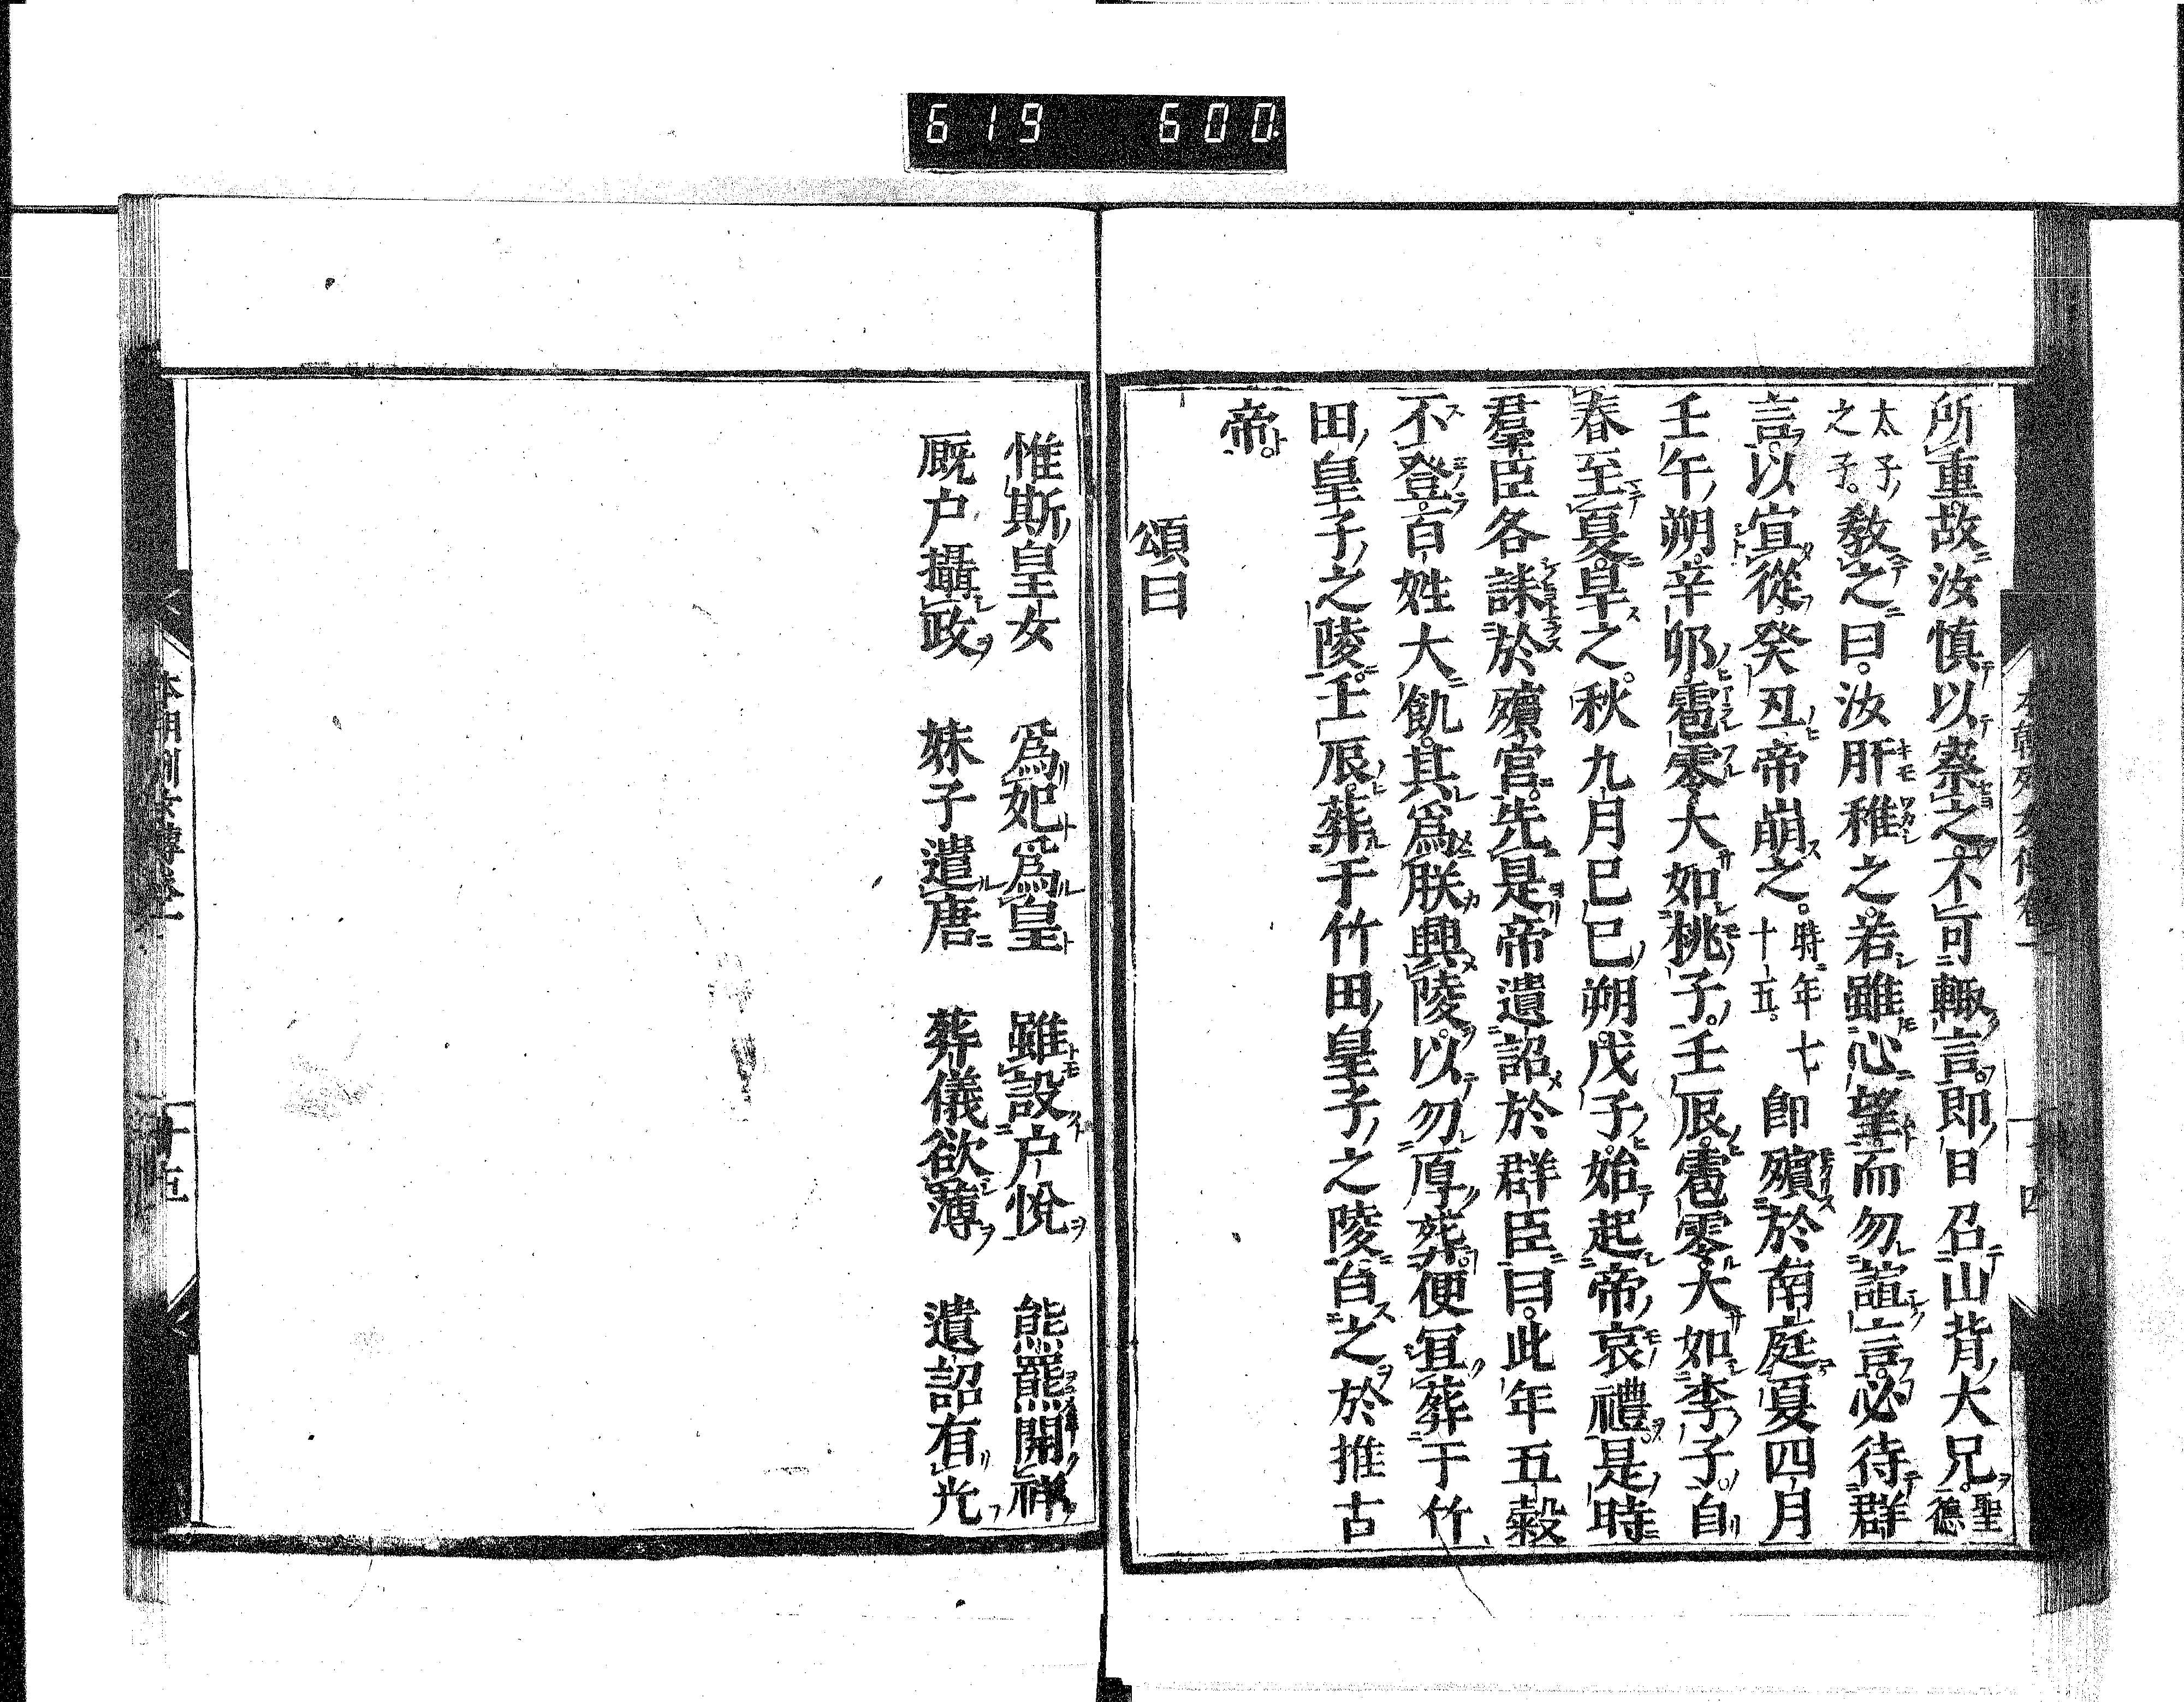 619 600
所重故汝慎以察之不可輙言即日召山背大兄聖德
太子之子。敎之曰。汝肝稚之。若雖心望而勿諠言。必待群
言。以宜從。癸丑帝崩之。時年七十五。卽殯於南庭。夏四月
壬午朔。辛卯。雹零大如桃子。壬辰。雹零大如李子。自
春至夏旱之。秋九月巳巳朔。戊子。始起帝哀禮。是時
羣臣各誄於殯宮。先是帝遺詔於群臣曰。此年五穀
不登。百姓大飢。其爲朕興陵。以勿厚葬。便宜葬于竹
田皇子之陵。壬辰。葬于竹田皇子之陵。白之於推古
帝。
頌曰
惟斯皇女 爲妃爲皇 雖設戸悅 熊羆開祥
厩戸攝政 妹子遣唐 葬儀欲薄 遺詔有光
本朝列女傳卷一 十五